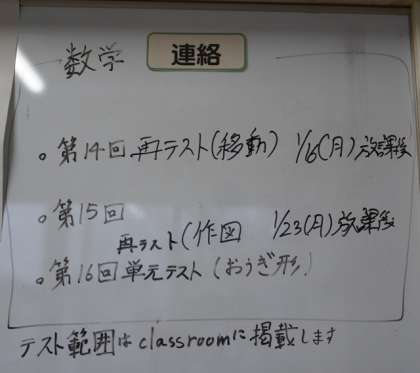 数学 連絡
。第14回再テスト(移動) 1/16(月)放課後
。第15回
再テスト(作図 1/23(月)放課後
。第16回単元テスト(おうぎ形)
テスト範囲はclassroomに掲載します